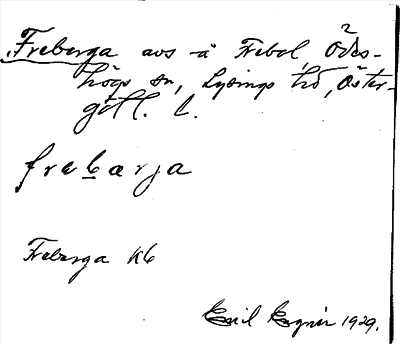 Freberga avs å Trebol Ödes-
högs sn, Lysings hd, Öster-
götl. l.
frebærja
Freberga Kb
Emil Engnér 1929.